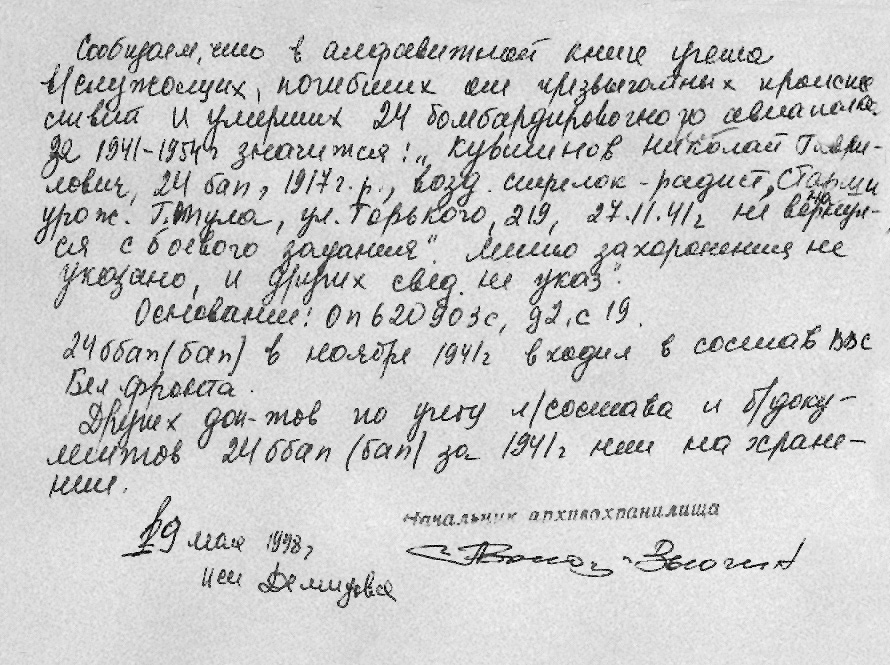 Сообщаем, что в алфавитной книге учета
в/служащих, погибших от чрезвычайных происше
ствий и умерших 24 бомбардировочного авиаполка
за 1941-1954г значится: „Кувшинов Николай Гаври-
лович, 24 бап, 1917 г.р., возд. стрелок-радист, старши
урож. г. Тула, ул. Горького, 219, 27.11.41г не вернул-
на
ся с боевого задания". Место захоронения не
указано, и других свед. не указ".
Основание: Оп 620903с, д2, с 19.
24 ббап (бап) в ноябре 1941г входил в состав ВВС
Бел. фронта.
Других док-тов по учету л/состава и б/доку-
ментов 24 ббап (бап) за 1941г нет на хране-
нии.
Начальник архивохранилища
29 мая 1998г
исп Демидова